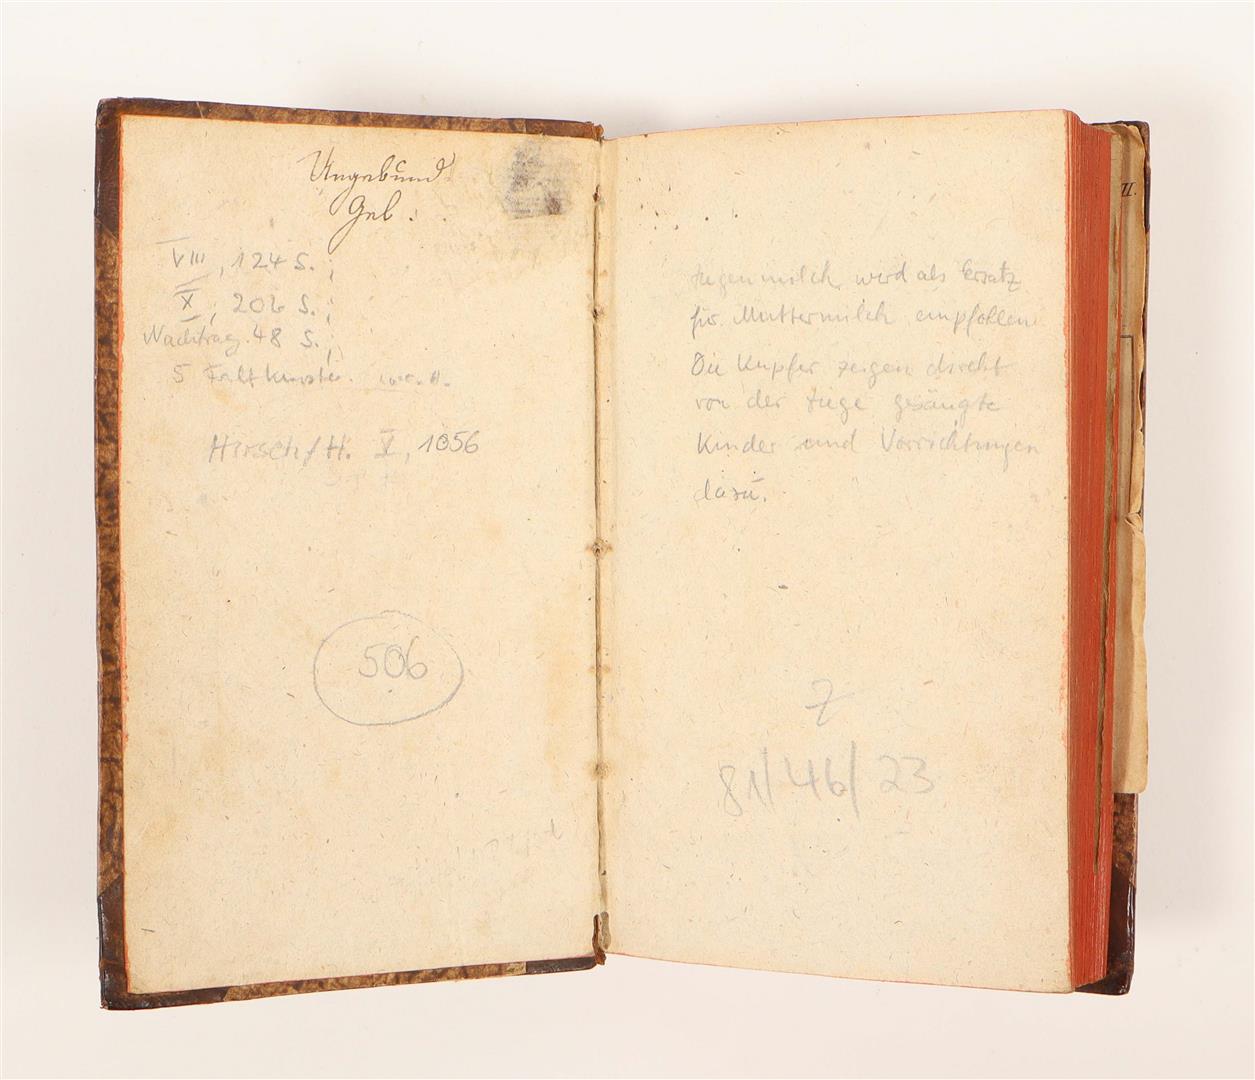 Ungebund
Geb.
VIII, 124 S.;
X, 206 S.;
Nachtrag. 48 S.;
5 Faltkupfer.
Hirsch/H. V, 1056
506
II.
Ziegenmilch wird als Ersatz
für Muttermilch empfohlen
Die Kupfer zeigen direkt
von der Ziege gesäugte
Kinder und Vorrichtungen
dazu.
Z
81/46/23